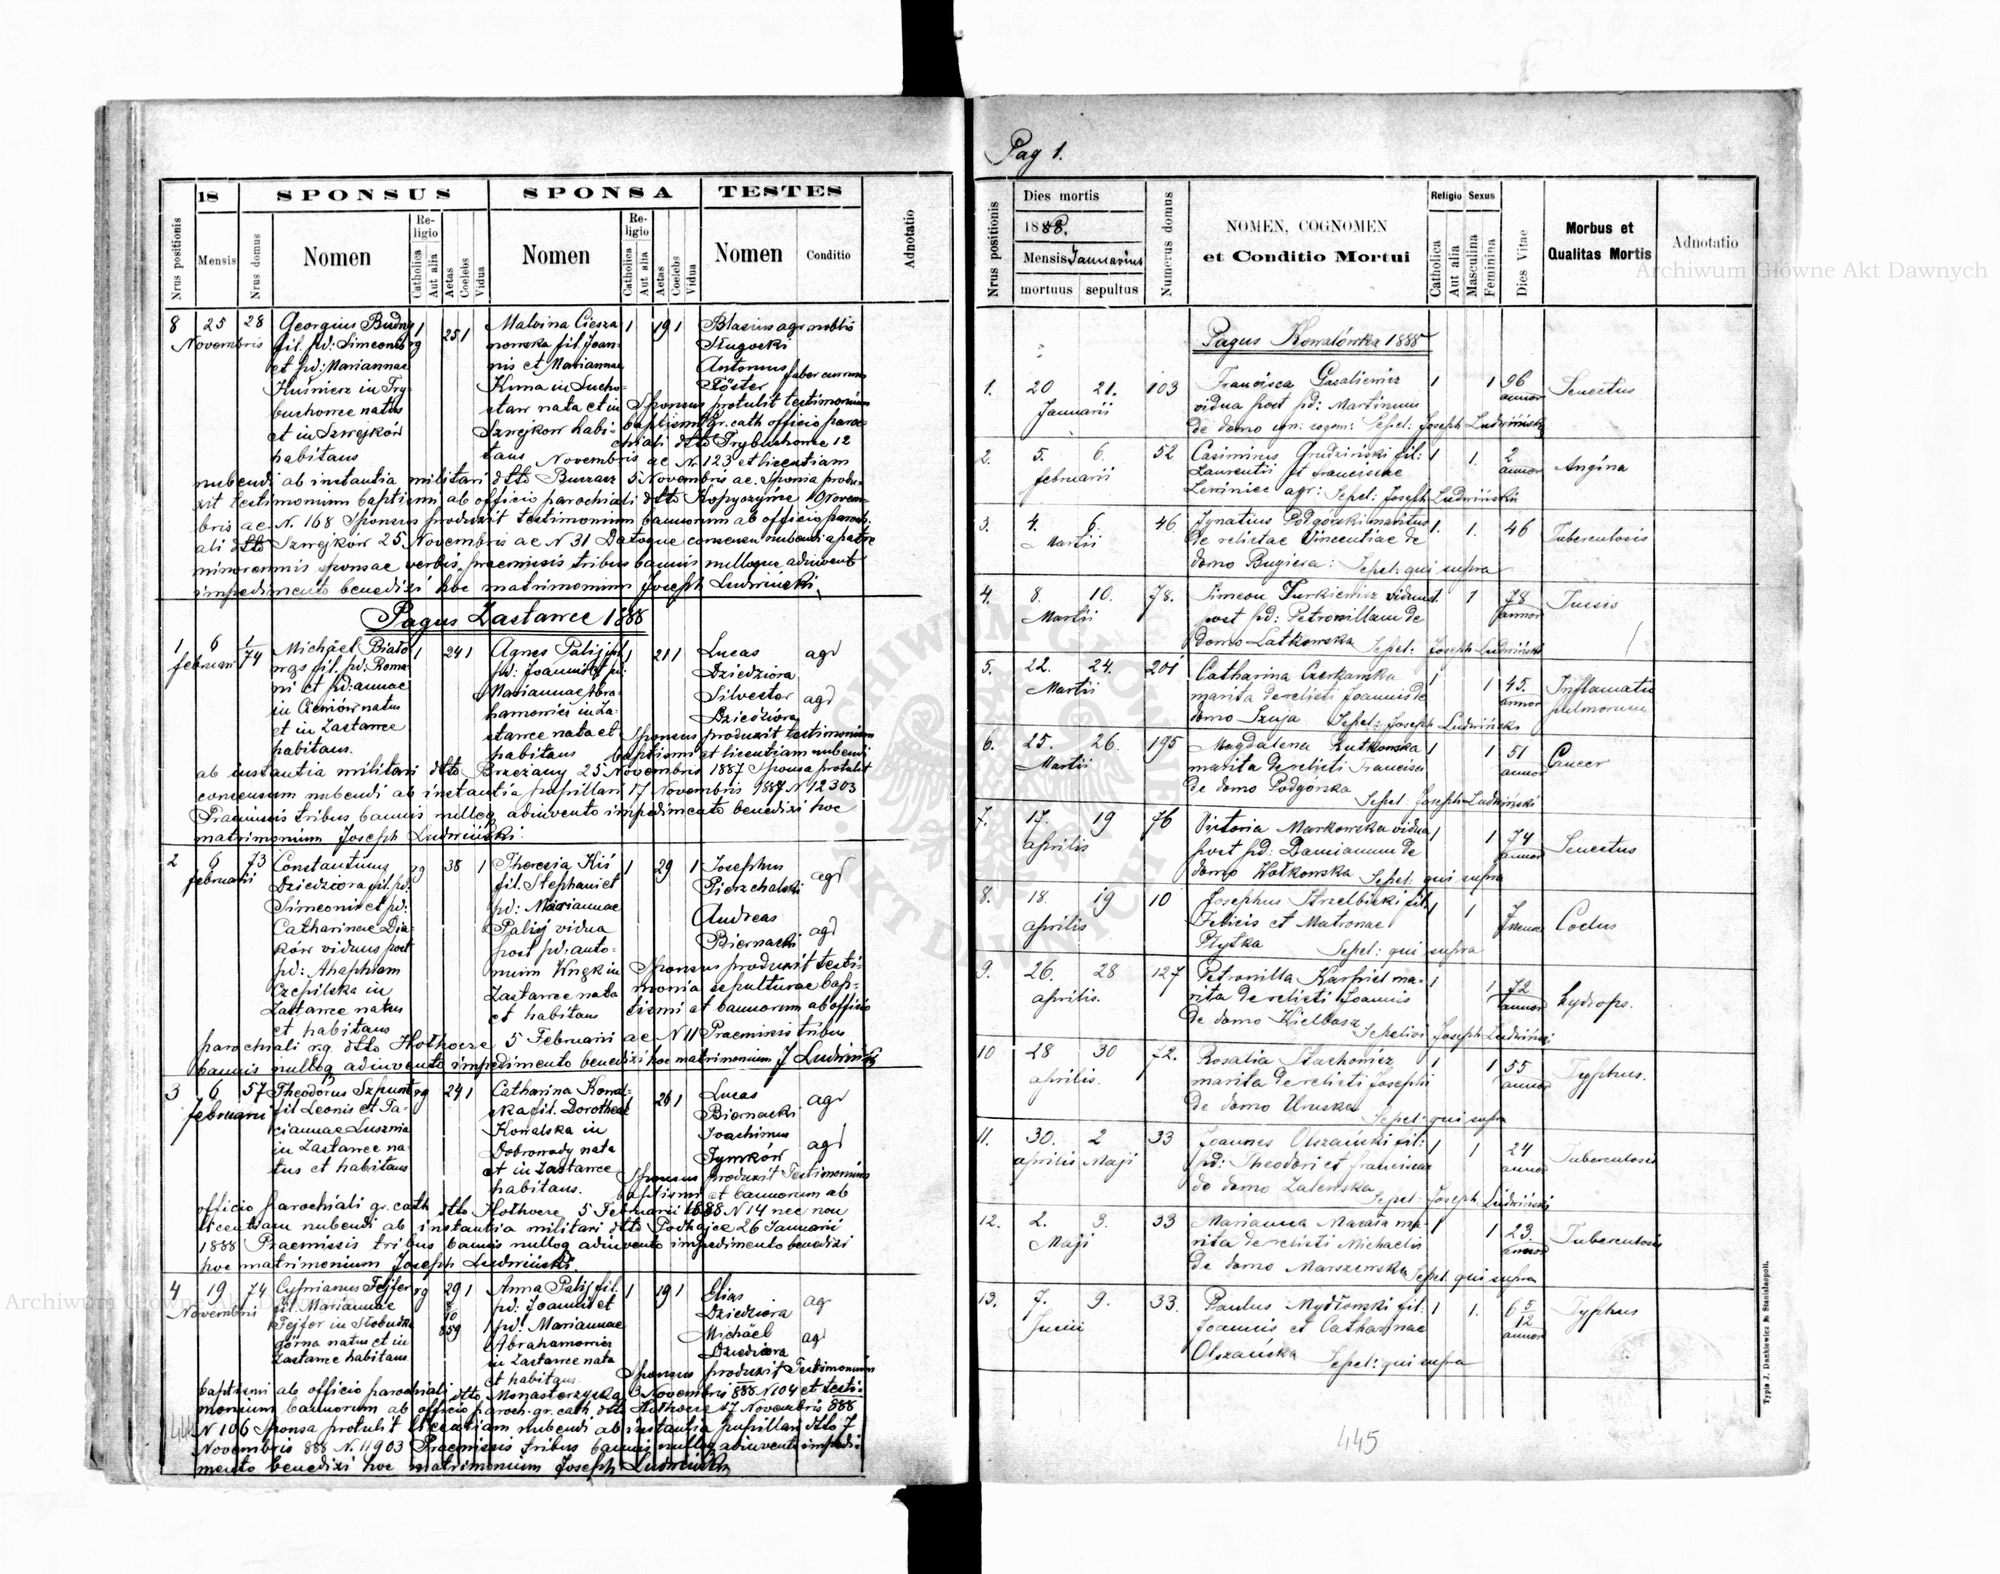 18
SPONSUS
SPONSA
TESTES
Nrus positionis
Mensis
Nrus domus
Nomen
Religio
Catholica
Aut alia
Aetas
Coelebs
Vidua
Nomen
Religio
Catholica
Aut alia
Aetas
Coelebs
Vidua
Nomen
Conditio
Adnotatio
8 25 28
Novembris
Georgius
fil. pd: Simeonis
et pd: Mariannae
Kuśnierz in Try-
buchowce natus
et in Szwejków
habitans
1 25 1
Malvina Ciesza
nowska fil. Joan-
nis et Mariannae
Kuma in Sucho-
staw nata et in
Szwejkow habi-
tans
1 19 1
Blasius agr nobilis
Antonius faber currum
Föster
Sponsus protulit testimonium
baptismi gr. cath officio paro-
chiali dtto Trybuchowce 12
Novembris ac Nr 123 et licentiam
nubendi ab instantia militari dtto Buczacz 5 Novembris ac. Sponsa produ-
xit testimonium baptismi ab officio parochiali dtto Kopyczyńce 10 Novem-
bris ac Nr. 168 Sponsus produxit testimonium bannorum ab officio paroch.
ali dtto Szwejków 25 Novembris ac N 31 Datoque consensu nubendi a patre
minorennis sponsae verbis, praemissis tribus bannis nulloque adinvento
impedimento benedixi hoc matrimonium Joseph Ludwiński.
Pagus Zastawce 1888
1 6 1/74
februarii
Michäel Biało
fil. pd. Roma
ni et pd: annae
in natus
et in Zastawce
habitans.
1 24 1
Agnes Palij fil
pd: Joannis et pd:
Mariannae Abra-
hamowicz in Za-
stawce nata et
habitans
1 21 1
Lucas
Dziedziora
agr
Silvester
Dziedziora
agr
Sponsus produxit testimonium
baptismi et licentiam nubendi
ab instantia militari dtto Brzezany 25 Novembris 1887 Sponsa protulit
consensum nubendi ab instantia pupillari 17 Novembris 1887 N 12303
Praemissis tribus bannis nulloq adinvento impedimento benedixi hoc
matrimonium Joseph Ludwiński.
2 6 73
februarii
Constantinus
Dziedziora fil. pd.
Simeonis et pd:
Catharinae Dia-
ków viduus post
pd: Ahaphiam
Czepilska in
Zastawce natus
et habitans
rg 38 1
Theresia Kiś
fil. Stephani et
pd: Mariannae
Palij vidua
post pd: anto-
nium in
Zastawce nata
et habitans
1 29 1
Josephus
Pierzchalski
agr
Andreas
Biernacki
agr
Sponsus produxit testi-
monia sepulturae bap-
tismi et bannorum ab officio
parochiali rg dtto Hołhocze 5 Februarii ac N 11 Praemissis tribus
bannis nulloq adinvento impedimento benedixi hoc matrimonium J Ludwiński
3 6 57
februarii
Theodorus Szpunt
fil Leonis et Ta-
ciannae
in Zastawce na-
tus et habitans
rg 24 1
Catharina Kowal
ska fil. Dorotheae
Kowalska in
Dobrowody nata
et in Zastawce
habitans.
1 26 1
Lucas
Biernacki
agr
Joachimus
Tymków
agr
Sponsus produxit Testimonium
baptismi et bannorum ab
officio parochiali gr. cath dtto Hołhocze 5 Februarii 1888 N 14 nec non
licentiam nubendi ab instantia militari dtto Podhajce 26 Januarii
1888 Praemissis tribus bannis nulloq adinvento impedimento benedixi
hoc matrimonium Joseph Ludwiński.
4 19 74
Novembris
Cyprianus Fejfer
fil. Mariannae
Fejfer in Słobudka
górna natus et in
Zastawce habitans
rg 29 1
8
10
859
Anna Palij fil.
pd. Joannis et
pd: Mariannae
Abrahamowicz
in Zastawce nata
et habitans.
1 19 1
Elias
Dziedziora
ag
Michäel
Dziedziora
agr
Sponsus produxit Testimonium
baptismi ab officio parochiali dtto Monasterzyska 3 Novembris 888 N 104 et testi-
monium bannorum ab officio paroch. gr. cath dtto Hołhocze 17 Novembris 888
N 106 Sponsa protulit licentiam nubendi ab instantia pupillari dtto 7
Novembris 888 N. 11903 Praemissis tribus bannis nulloq adinvento impedi-
mento benedixi hoc matrimonium Joseph Ludwiński
444
Pag 1.
Nrus positionis
Dies mortis
1888.
Mensis Januarius
mortuus sepultus
Numerus domus
NOMEN, COGNOMEN
et Conditio Mortui
Religio
Catholica
Aut alia
Sexus
Masculina
Feminina
Dies Vitae
Morbus et
Qualitas Mortis
Adnotatio
Pagus Kowalówka 1888
1. 20 21. 103 Francisca 1 1 96 Senectus
Januarii vidua post pd: Martinum annor
de domo ign: cogn: Sepel: Joseph Ludwiński
2. 5. 6. 52 Casimirus Grudziński fil: 1 1. 2 Angina
februarii Laurentii et franciscae annor
agr: Sepel: Joseph Ludwiński
3. 4. 6. 46 Ignatius Podgórski maritus 1. 1. 46 Tuberculosis
Martii de relictae Vincentiae de
domo Bugiera: Sepel: qui supra
4. 8. 10. 78. Simeon Turkiewicz viduus 1. 1 78 Tussis
Martii post pd: Petronillam de annor
domo Latkowska Sepel: Joseph Ludwiński
5. 22. 24. 201 Catharina Czerkawska 1 1 45. Inflamatio
Martii marita derelicti Joannis de annor pulmorum
domo Szuja Sepel: Joseph Ludwiński
6. 25. 26. 195 Magdalena Rutkowska 1 1 51 Cancer
Martii marita derelicti Francisci annor
de domo Podgórska Sepel: Joseph Ludwiński
7. 17. 19 76 Victoria Markowska vidua 1 1 74 Senectus
aprilis post pd: Damianum de annor
domo Wołkowska Sepel: qui supra
8. 18. 19 10 Josephus Strzelbicki fil. 1 1 7 mens
aprilis Felicis et Matronae
Płytka Sepel: qui supra
9. 26. 28 127 Petronilla Karpiel ma- 1 1 72 hydrops.
aprilis. rita derelicti Joannis annor
de domo Kielbasa Sepelivi Joseph Ludwiński
10 28 30 72. Rosalia Stachowicz 1 1 55 Typhus.
aprilis. marita derelicti Josephi annor
de domo Uruska Sepel: qui supra
11. 30. 2 33 Joannes Olszański fil: 1 1 24 Tuberculosis
aprilis Maji pd: Theodori et franciscae annor
de domo Zalewska Sepel: Joseph Ludwiński
12. 2. 3. 33 Marianna ma- 1 1 23. Tuberculosis
Maji rita derelicti Michaelis annor
de domo Marszewska Sepel. qui supra
13. 7. 9. 33. Paulus Mydłowski fil. 1 1. 6 5/12 Typhus
Junii Joannis et Catharinae annor
Olszańska Sepel: qui supra
445
Typis J. Dankiewicz in Stanislaopoli.
Archiwum Główne Akt Dawnych
Archiwum Główne Akt Dawnych
ARCHIWUM GŁÓWNE AKT DAWNYCH